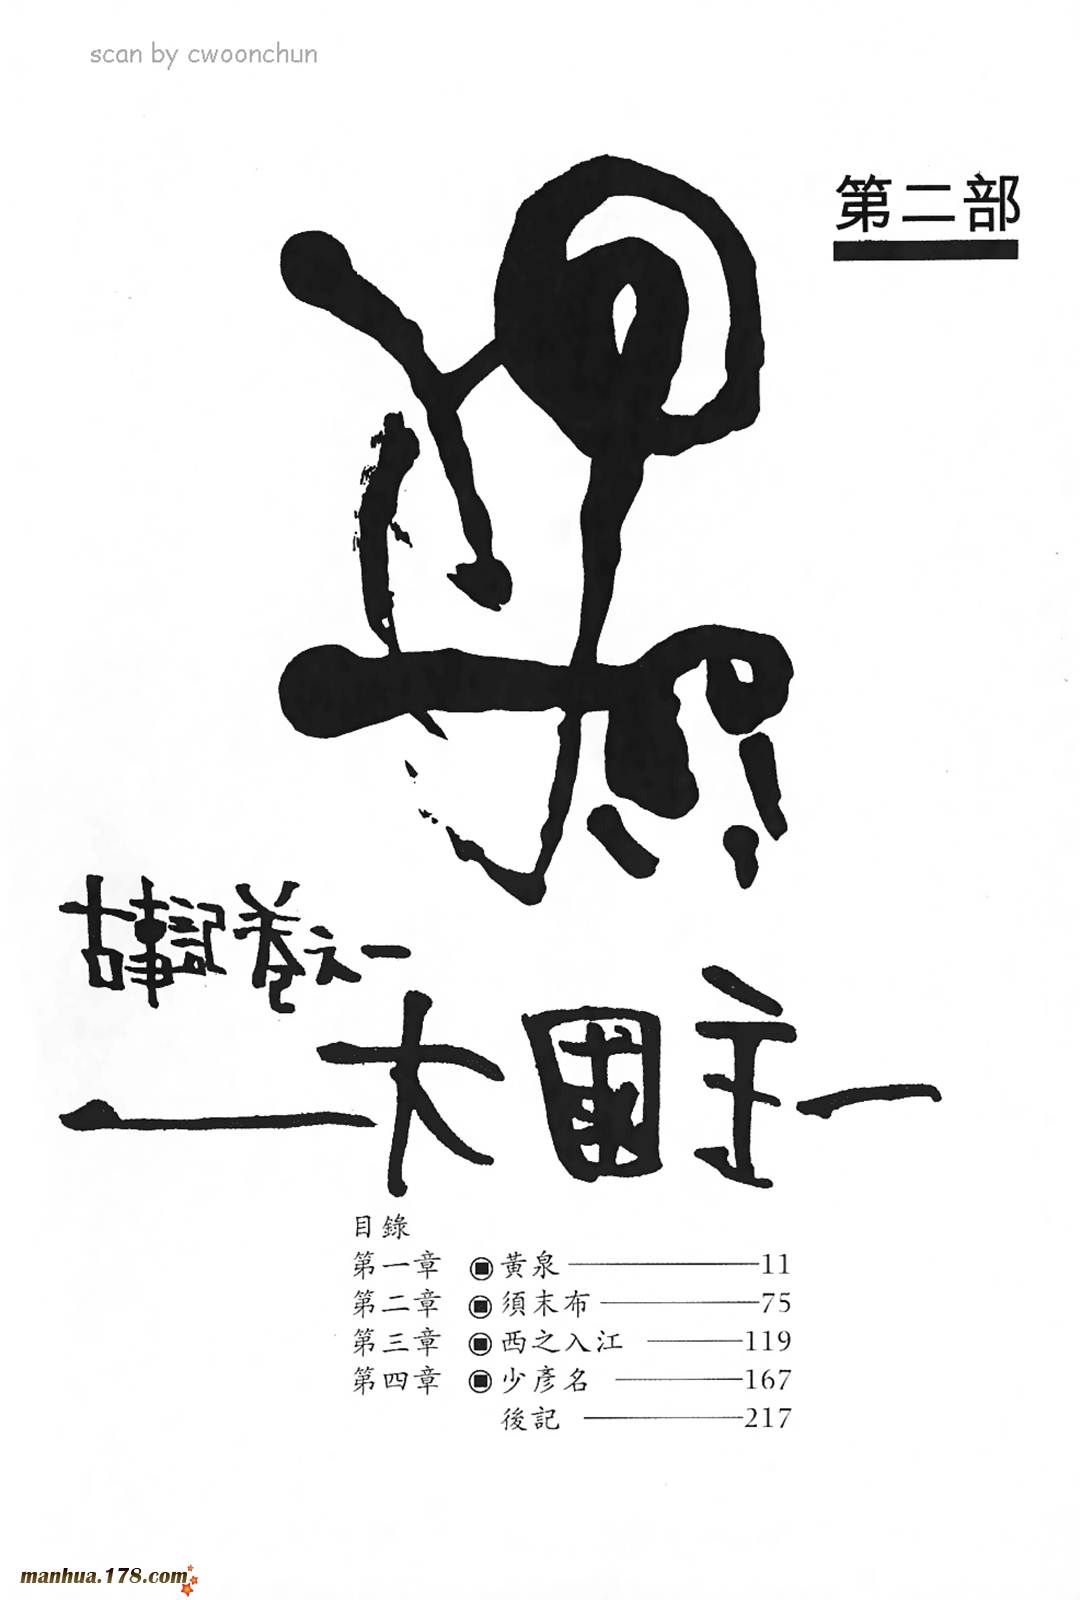 scan by cwoonchun
第二部
古事記卷之一
大國主
目錄
第一章 ◉ 黃泉 11
第二章 ◉ 須末布 75
第三章 ◉ 西之入江 119
第四章 ◉ 少彥名 167
後記 217
manhua.178.com